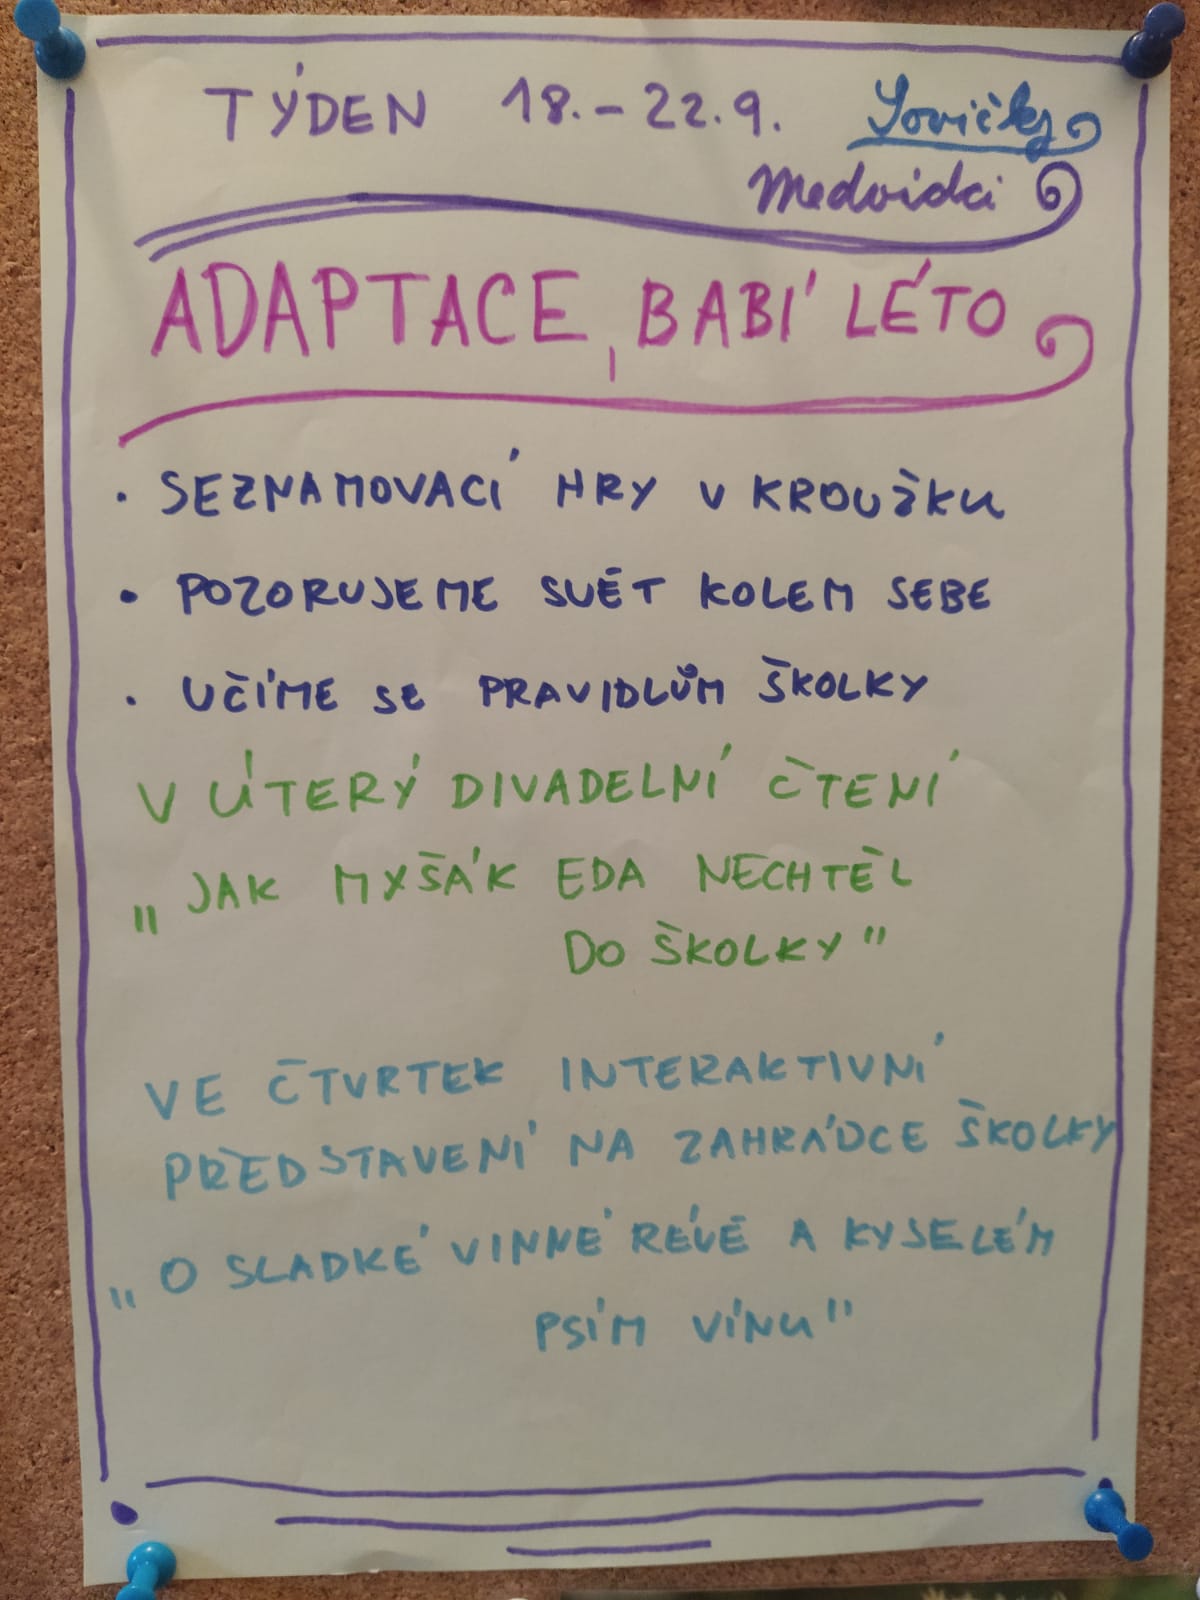 TÝDEN 18.-22.9. Sovičky
Medvídci
ADAPTACE, BABÍ LÉTO
• SEZNAMOVACÍ HRY V KROUŽKU
• POZORUJEME SVĚT KOLEM SEBE
• UČÍME SE PRAVIDLŮM ŠKOLKY
V ÚTERÝ DIVADELNÍ ČTENÍ
„JAK MYŠÁK EDA NECHTĚL
DO ŠKOLKY"
VE ČTVRTEK INTERAKTIVNÍ
PŘEDSTAVENÍ NA ZAHRÁDCE ŠKOLKY
„O SLADKÉ VINNÉ RÉVĚ A KYSELÉM
PSÍM VÍNU"